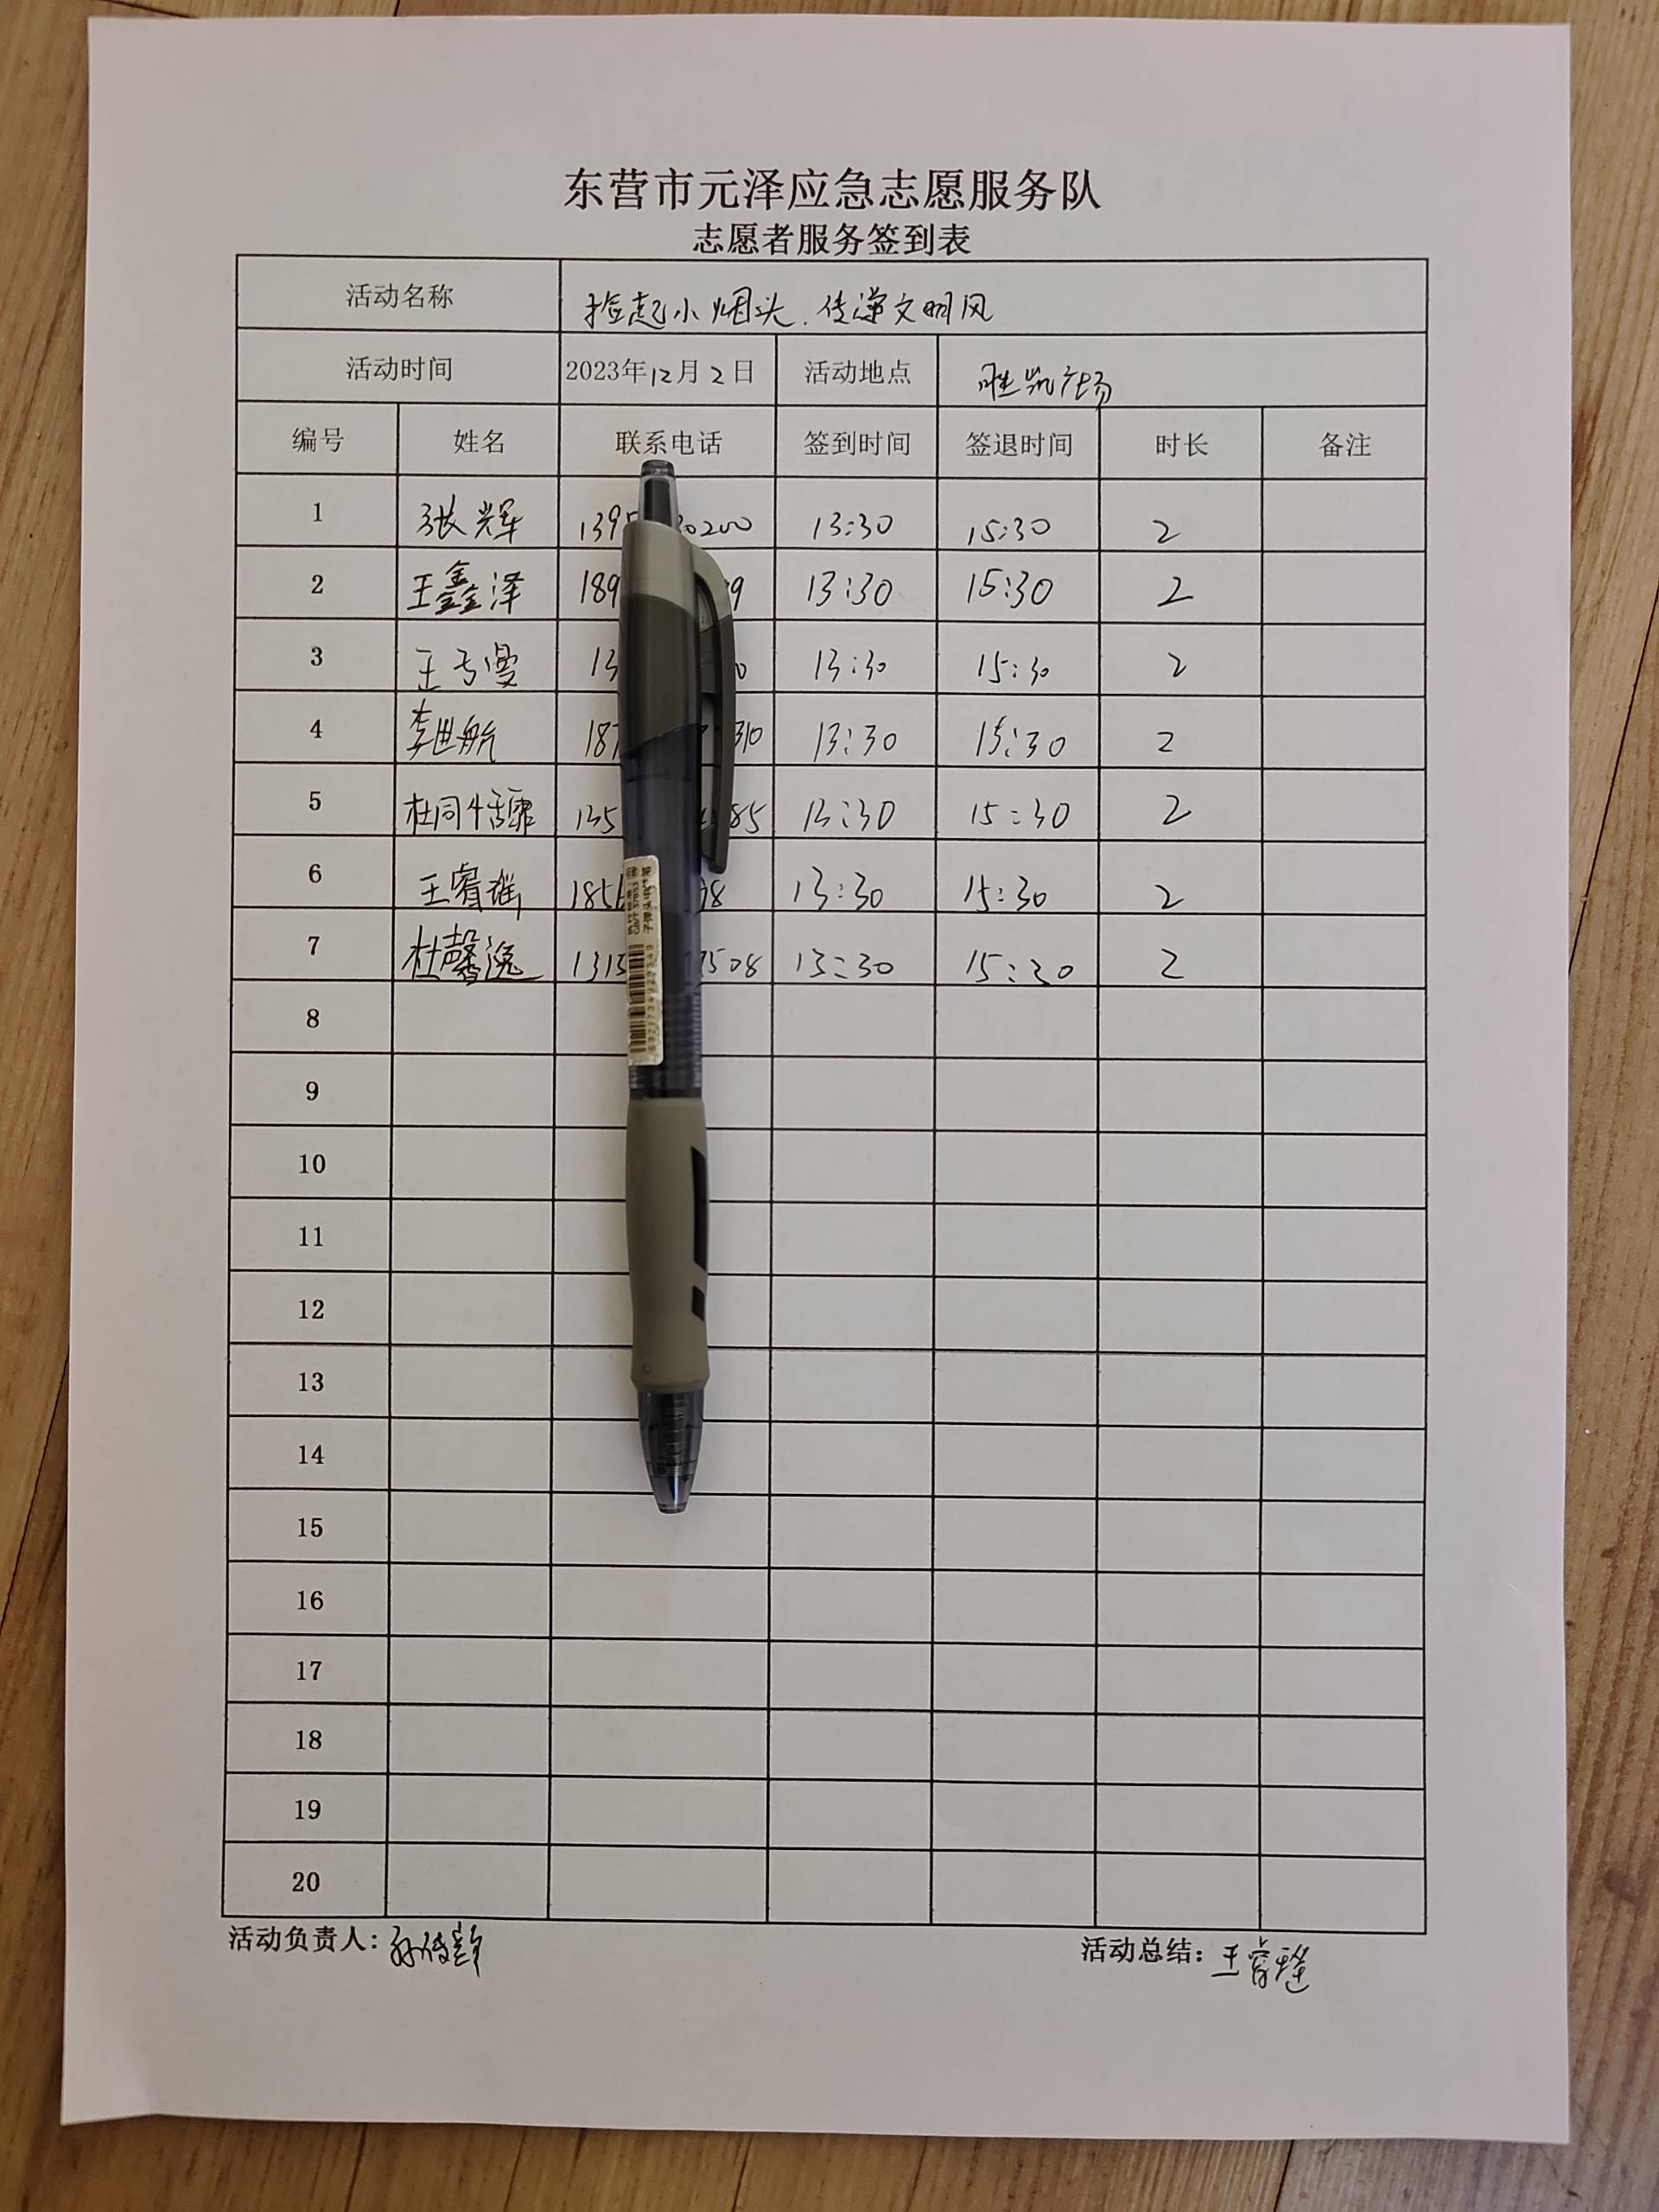 东营市元泽应急志愿服务队
志愿者服务签到表
活动名称 捡起小烟头.传递文明风
活动时间 2023年12月2日 活动地点 胜凯广场
编号 姓名 联系电话 签到时间 签退时间 时长 备注
1 张辉 139 0200 13:30 15:30 2
2 王鑫泽 189 9 13:30 15:30 2
3 13 0 13:30 15:30 2
4 李世航 187 310 13:30 15:30 2
5 135 85 13:30 15:30 2
6 王睿瑶 185 8 13:30 15:30 2
7 杜馨逸 1315 7508 13:30 15:30 2
8
9
10
11
12
13
14
15
16
17
18
19
20
活动负责人: 活动总结: